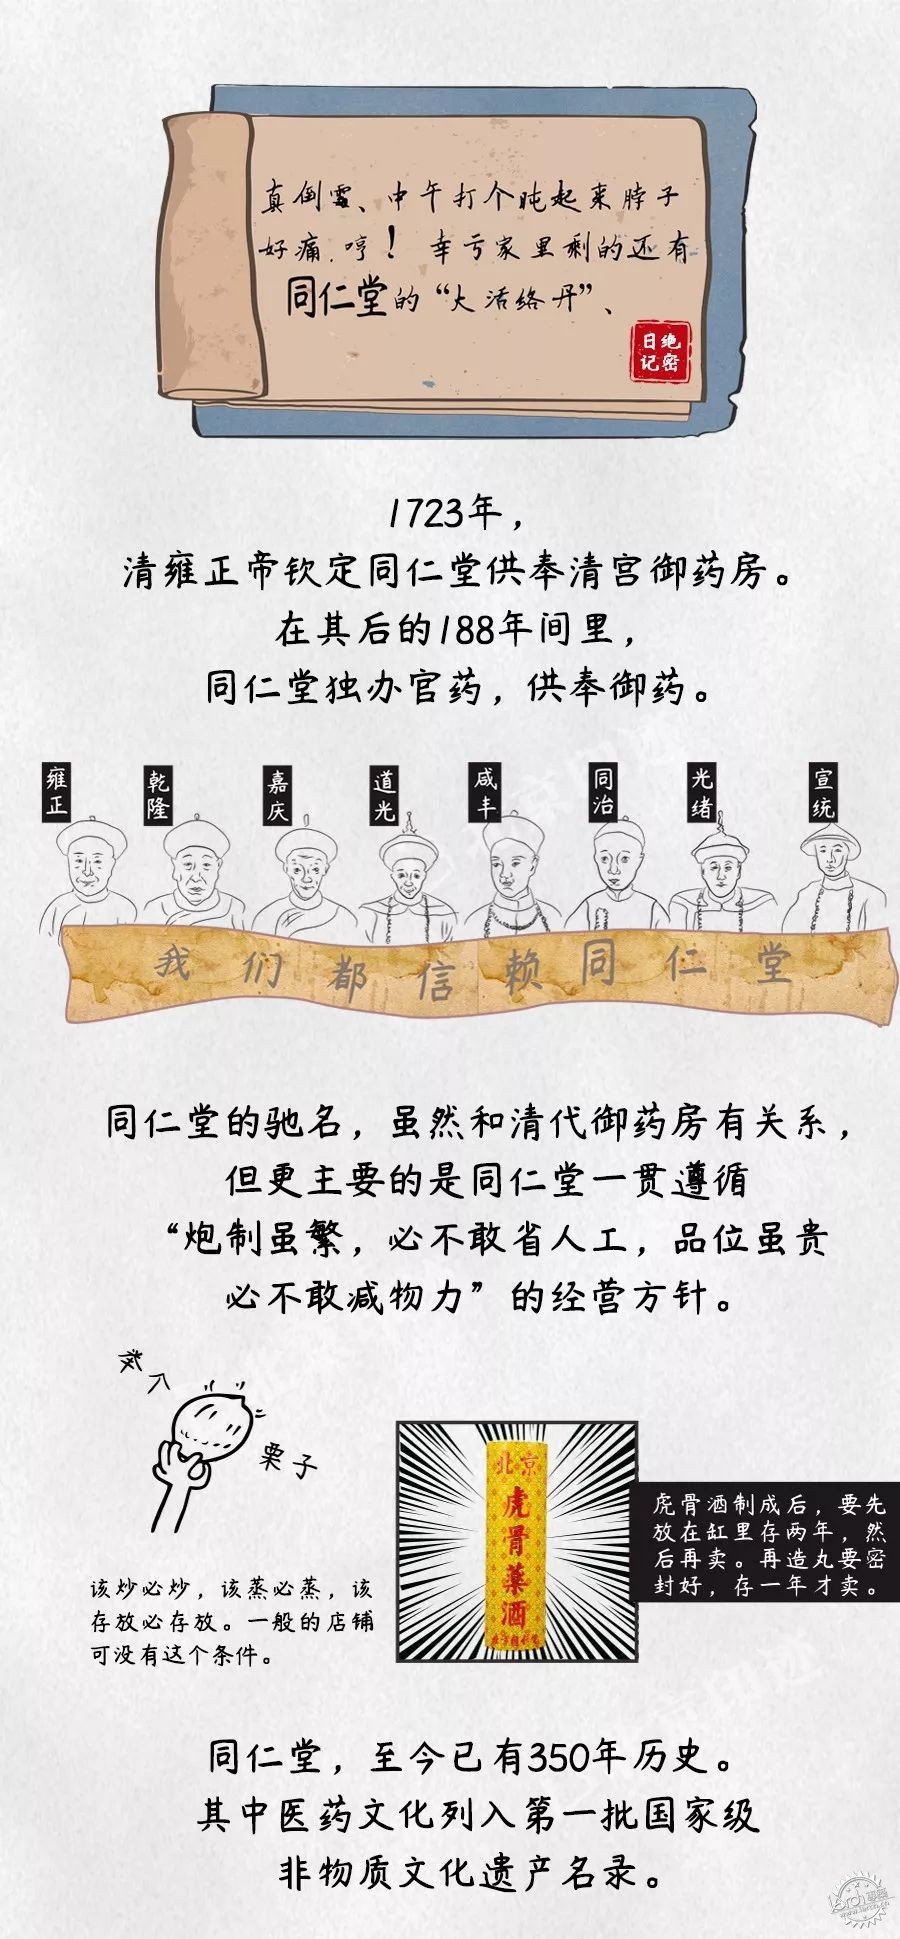 真倒霉、中午打个盹起来脖子
好痛.哼！幸亏家里剩的还有
同仁堂的“大活络丹”、
绝密
日记
1723年，
清雍正帝钦定同仁堂供奉清宫御药房。
在其后的188年间里，
同仁堂独办官药，供奉御药。
雍正
乾隆
嘉庆
道光
咸丰
同治
光绪
宣统
我们都信赖同仁堂
同仁堂的驰名，虽然和清代御药房有关系，
但更主要的是同仁堂一贯遵循
“炮制虽繁，必不敢省人工，品位虽贵
必不敢减物力”的经营方针。
栗子
北京
虎骨药酒
虎骨酒制成后，要先
放在缸里存两年，然
后再卖。再造丸要密
封好，存一年才卖。
该炒必炒，该蒸必蒸，该
存放必存放。一般的店铺
可没有这个条件。
同仁堂，至今已有350年历史。
其中医药文化列入第一批国家级
非物质文化遗产名录。